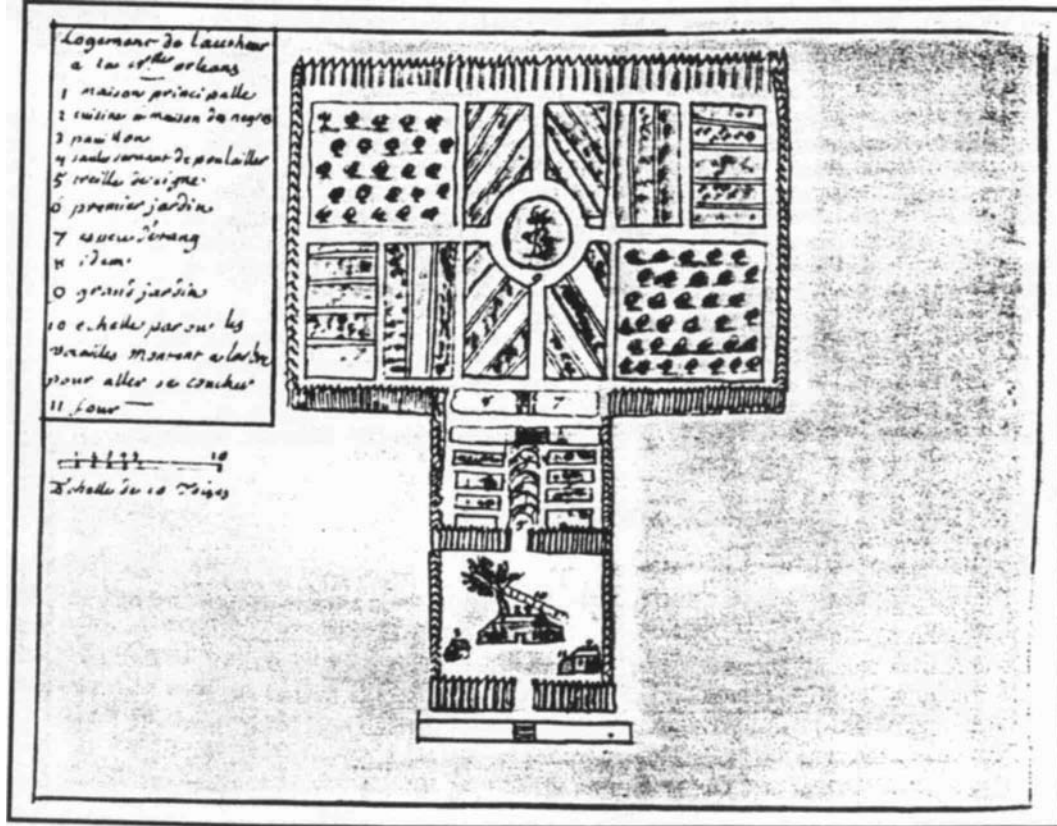 Logement de Lautheur
a la nlle orleans
1 maison principalle
2 cuisine et maison des negres
3 pavillon
4 saule servant de poulailler
5 treille de vigne
6 premier jardin
7 d'etang
8 idem
9 grand jardin
10 echelle par ou les
volailles montent a larbre
pour aller se coucher
11 four
10
Echelle de 10 Toises
7
10